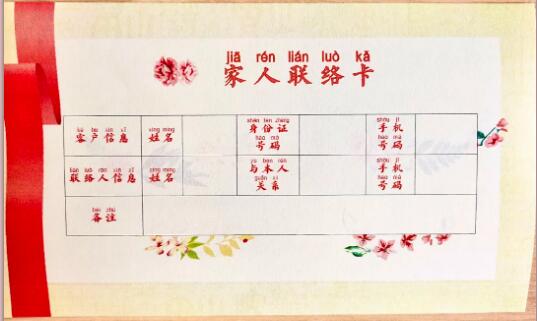 jiā rén lián luò kǎ
家人联络卡
kè hù xìn xī
客户信息
xìng míng
姓名
shēn fèn zhèng
身份证
hào mǎ
号码
shǒu jī
手机
hào mǎ
号码
lián luò rén xìn xī
联络人信息
xìng míng
姓名
yǔ běn rén
与本人
guān xì
关系
shǒu jī
手机
hào mǎ
号码
bèi zhù
备注